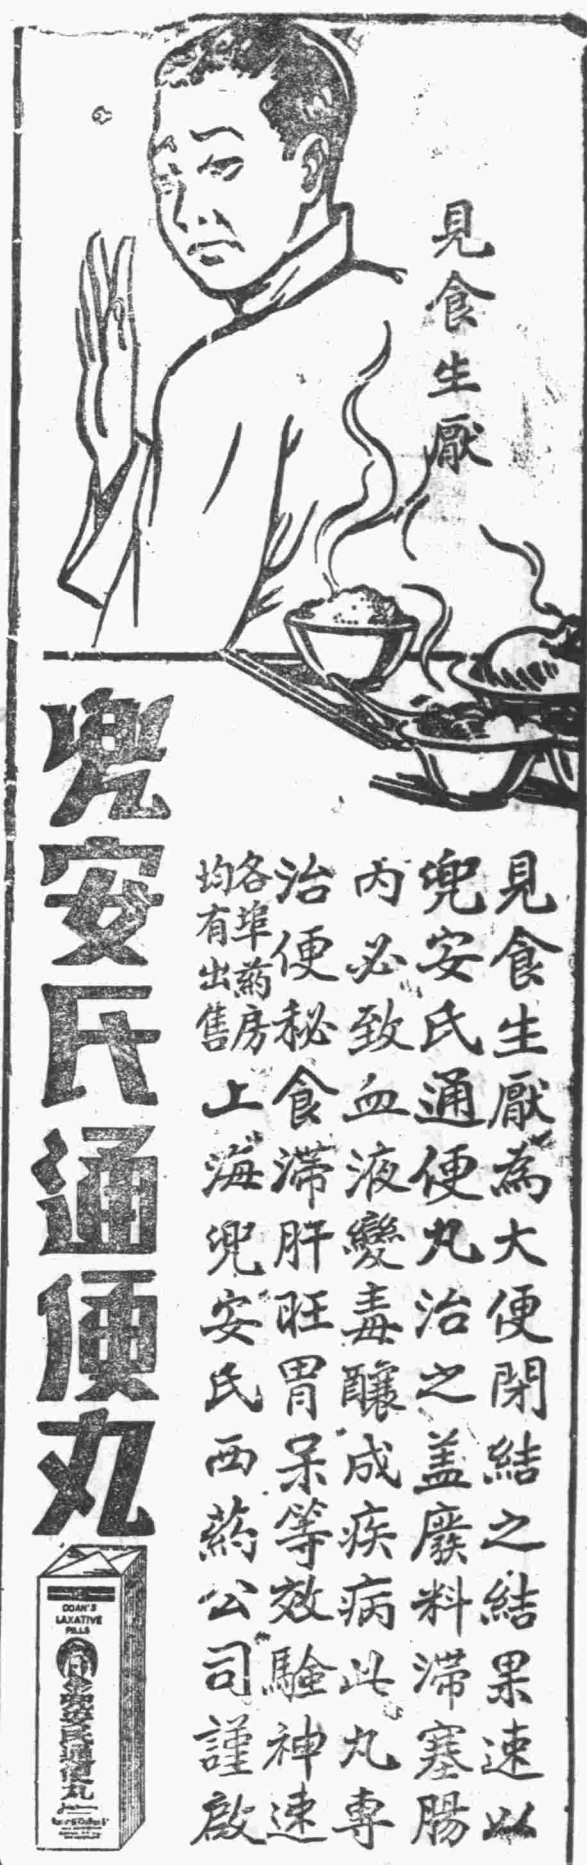 見食生厭
見食生厭為大便閉結之結果速以
兜安氏通便丸治之盖廢料滞塞腸
内必致血液變毒釀成疾病此丸專
治便秘食滞肝旺胃呆等效驗神速
各埠葯房
均有出售
上海兜安氏西葯公司謹啟
兜安氏通便丸
DOAN'S
LAXATIVE
PILLS
兜安氏通便丸